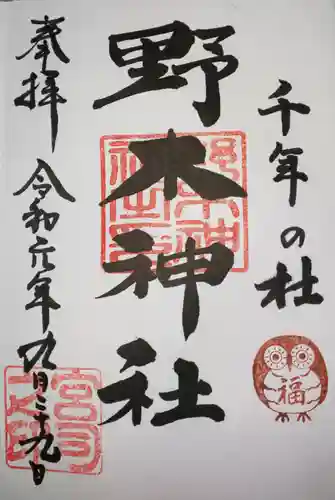 千年の杜
福
野木神社
奉拝
令和元年九月二十九日